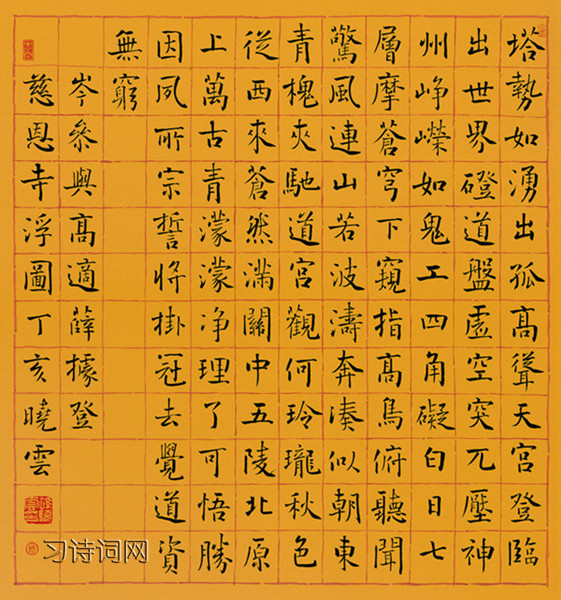 塔勢如湧出孤高聳天宮登臨
出世界磴道盤虛空突兀壓神
州崢嶸如鬼工四角礙白日七
層摩蒼穹下窺指高鳥俯聽聞
驚風連山若波濤奔湊似朝東
青槐夾馳道宮觀何玲瓏秋色
從西來蒼然滿關中五陵北原
上萬古青濛濛净理了可悟勝
因夙所宗誓將掛冠去覺道資
無窮
岑參與高適薛據登
慈恩寺浮圖丁亥曉雲
习诗词网